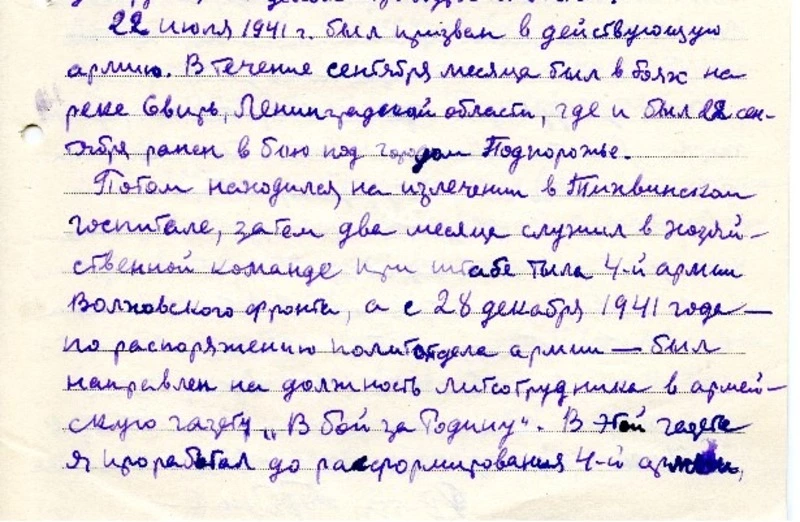 22 июля 1941 г. был призван в действующую
армию. В течение сентября месяца был в боях на
реке Свирь, Ленинградской области, где и был 22 сен-
тября ранен в бою под городом Подпорожье.
Потом находился на излечении в Тихвинском
госпитале, затем два месяца служил в хозяй-
ственной команде при штабе тыла 4-й армии
Волховского фронта, а с 28 декабря 1941 года —
по распоряжению политотдела армии — был
направлен на должность литсотрудника в армей-
скую газету „В бой за Родину“. В этой газете
я проработал до расформирования 4-й армии,